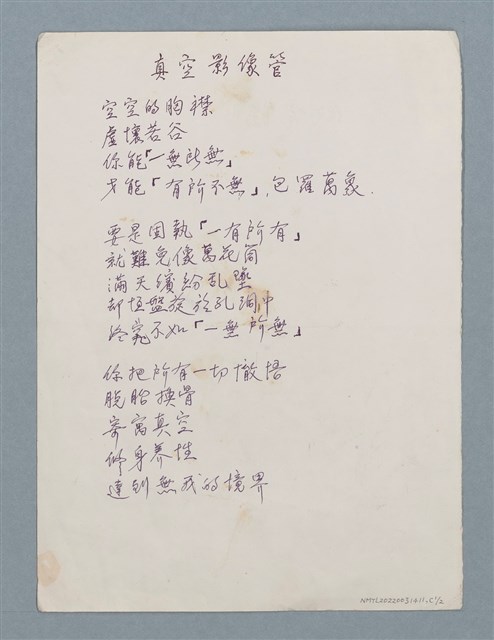 真空影像管
空空的胸襟
虛壞若谷
你能「一無所無」
才能「有所不無」,包羅萬象.
要是固執「一有所有」
就難免像萬花筒
滿天繽紛乱墜
却恒盤旋於孔洞中
終究不如「一無所無」
你把所有一切撤悟
脱胎換骨
寄寓真空
修身养性
達到無我的境界
NMTL20220031611.c½